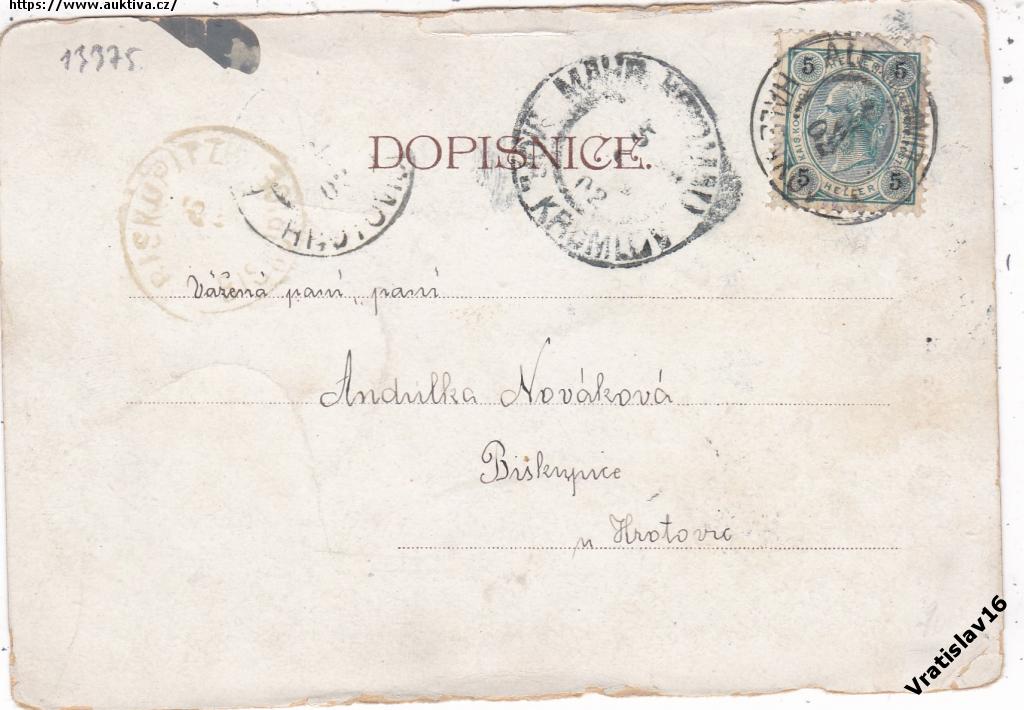 https://www.auktiva.cz/
13375
DOPISNICE.
5 5
5 HELLER 5
BISKUPITZ
KROMLOV
Vážená paní, paní
Andulka Nováková
Biskupice
u Hrotovic
Vratislav16